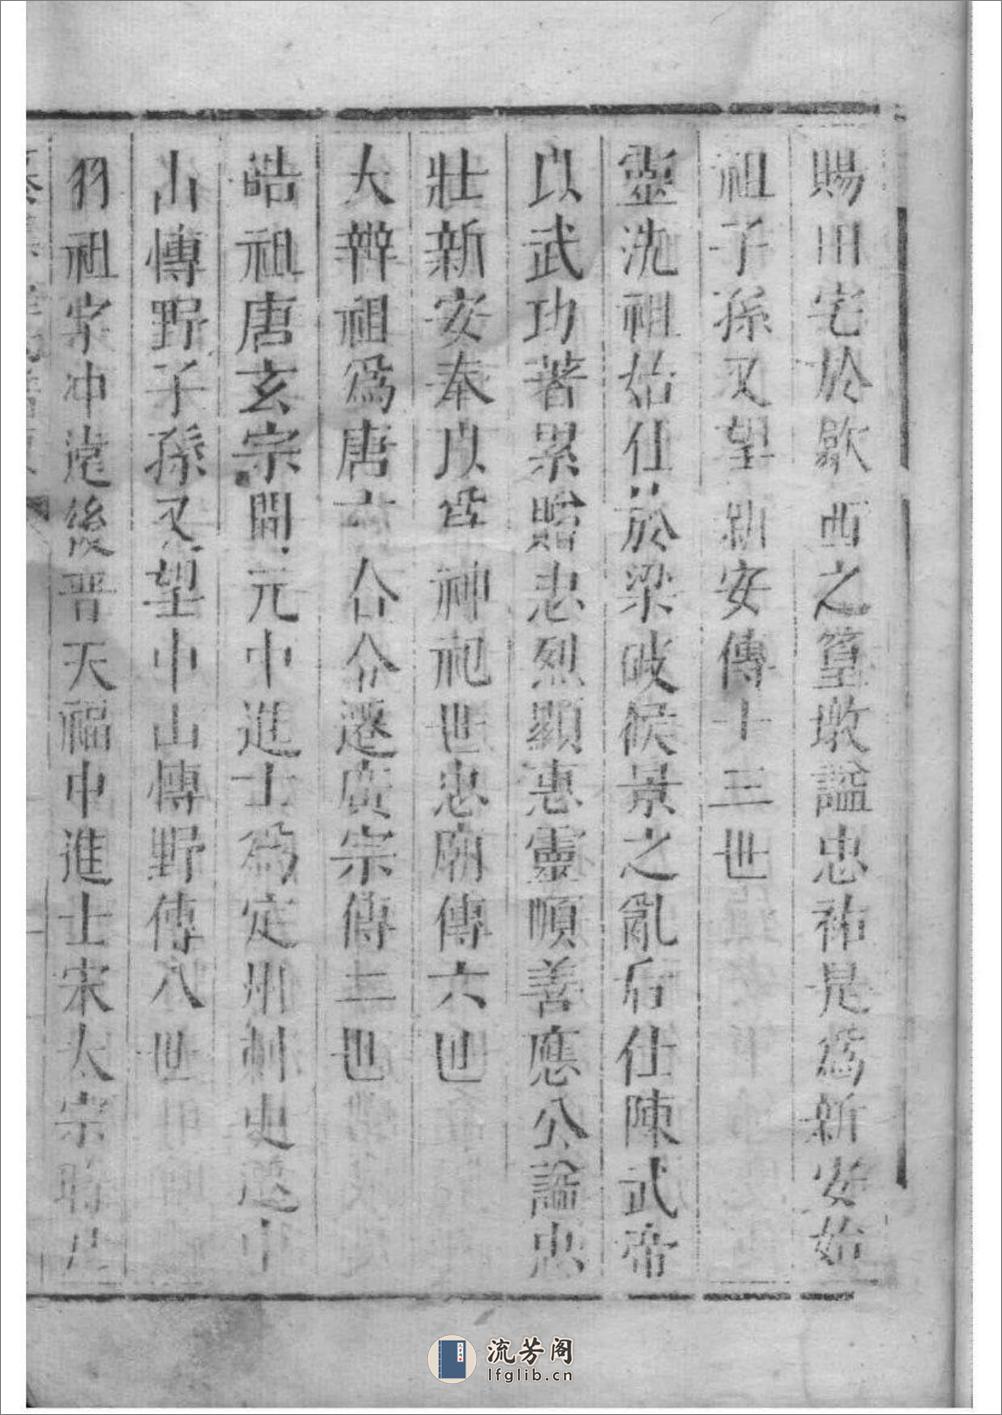 賜田宅於歙西之篁墩謚忠祐是爲新安始
祖子孫又望新安傳十三世
靈洗祖始仕於梁破侯景之亂后仕陳武帝
以武功著累贈忠烈顯惠靈順善應公謚忠
壯新安奉以爲神祀世忠廟傳六世
大辫祖爲唐六合令遷廣宗傳三世
皓祖唐玄宗開元中進士爲定州刺史遷中
山博野子孫又望中山博野傳八世
羽祖字冲遠後晋天福中進士宋太宗時
流芳阁
lfglib.cn